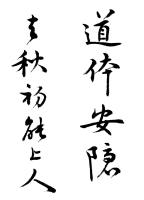 道体安隱
去秋初能上人